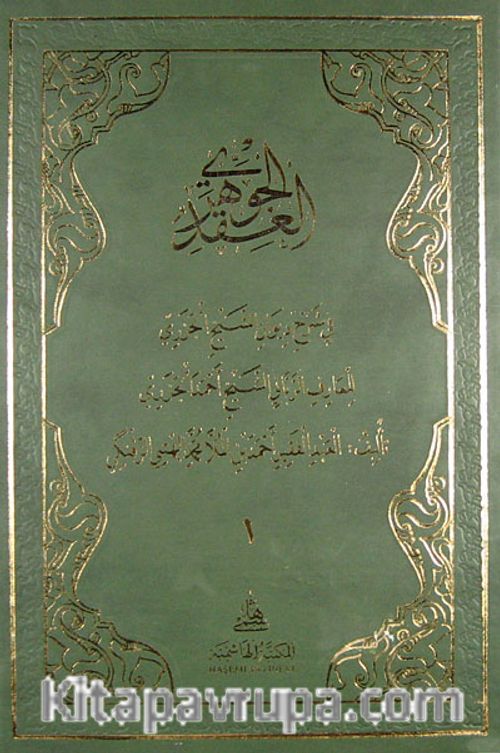 العقد
الجوهري
في شرح ديوان الشيخ الجزري
للعارف الرباني الشيخ أحمد الجزري
تأليف: العبد الفقير أحمد بن الملا محمد البهتي الزفنكي
١
هاشمي
المكتبة الهاشمية
HAŞEMİ YAYINEVİ
Kitapavrupa.com